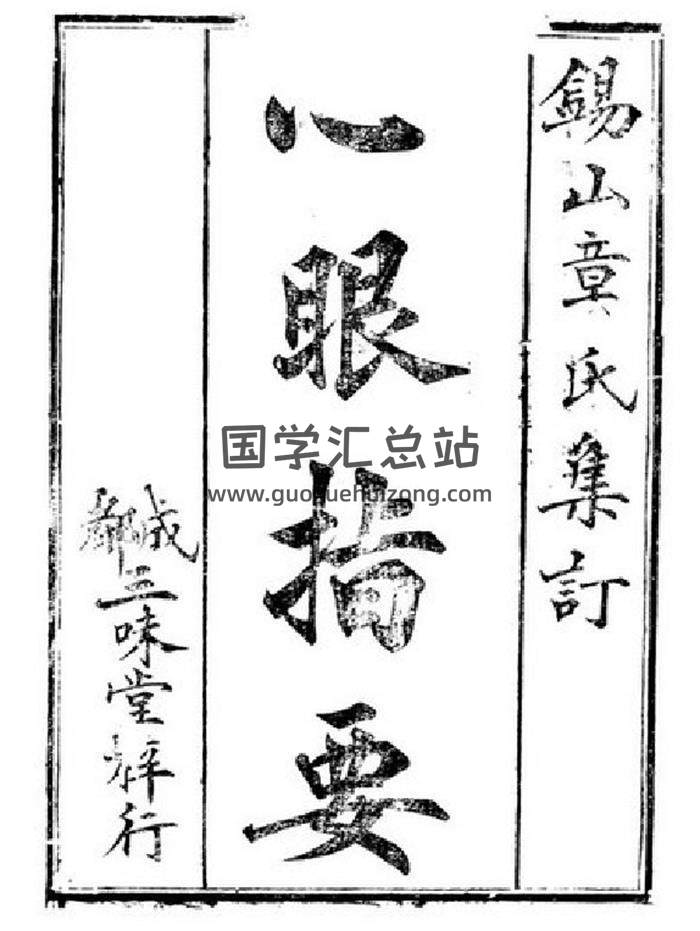 錫山章氏集訂
心眼指要
成都三味堂梓行
国学汇总站
www.guoxuehuizong.com